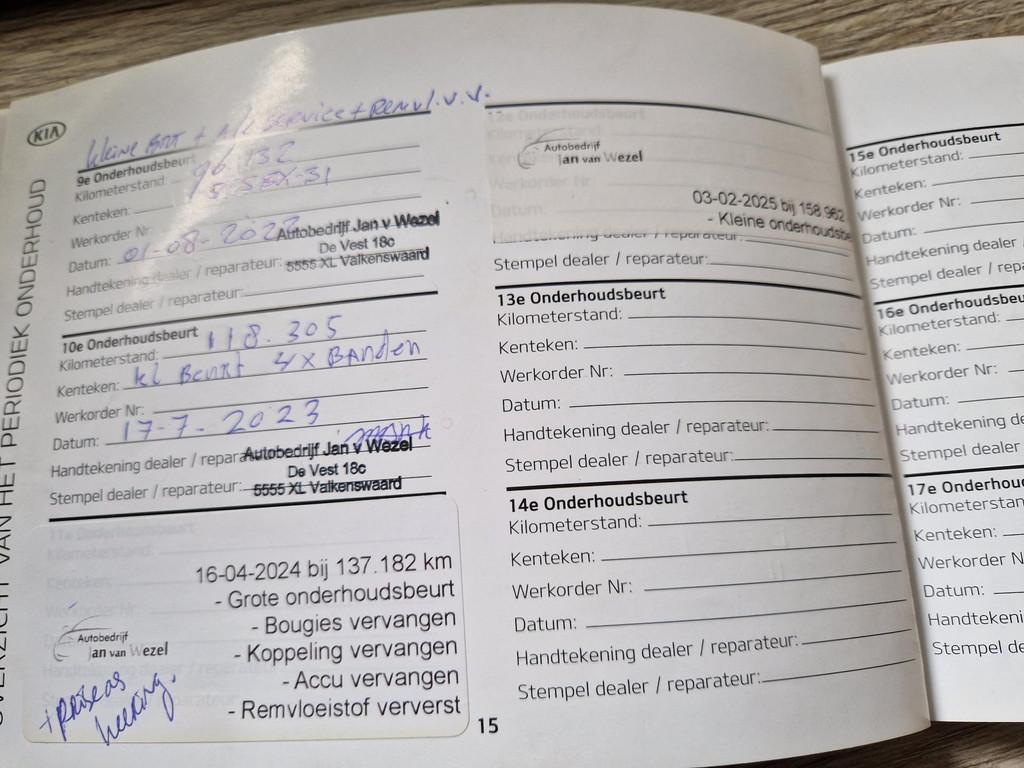 KIA
OVERZICHT VAN HET PERIODIEK ONDERHOUD
kleine BRT + A/C SERVICE + REMVL.V.V.
9e Onderhoudsbeurt
Kilometerstand: 96.132
Kenteken:
Werkorder Nr:
Datum: 01-08-202
Autobedrijf Jan v Wezel
De Vest 18c
5555 XL Valkenswaard
Handtekening dealer / reparateur:
Stempel dealer / reparateur:
10e Onderhoudsbeurt
Kilometerstand: 118.305
Kenteken: kl Beurt 4x BANDEN
Werkorder Nr:
Datum: 17-7-2023
Handtekening dealer / repara
Autobedrijf Jan v Wezel
De Vest 18c
5555 XL Valkenswaard
Stempel dealer / reparateur:
11e Onderhoudsbeurt
Kilometerstand:
16-04-2024 bij 137.182 km
- Grote onderhoudsbeurt
- Bougies vervangen
- Koppeling vervangen
- Accu vervangen
- Remvloeistof ververst
Autobedrijf
jan van Wezel
15
12e Onderhoudsbeurt
Kilometerstand:
Autobedrijf
jan van Wezel
Werkorder Nr:
Datum:
03-02-2025 bij 158.962
- Kleine onderhoudsbe
Handtekening dealer / reparateur:
Stempel dealer / reparateur:
13e Onderhoudsbeurt
Kilometerstand:
Kenteken:
Werkorder Nr:
Datum:
Handtekening dealer / reparateur:
Stempel dealer / reparateur:
14e Onderhoudsbeurt
Kilometerstand:
Kenteken:
Werkorder Nr:
Datum:
Handtekening dealer / reparateur:
Stempel dealer / reparateur:
15e Onderhoudsbeurt
Kilometerstand:
Kenteken:
Werkorder Nr:
Datum:
Handtekening dealer
Stempel dealer / repa
16e Onderhoudsbeu
Kilometerstand:
Kenteken:
Werkorder Nr:
Datum:
Handtekening de
Stempel dealer
17e Onderhou
Kilometerstan
Kenteken:
Werkorder N
Datum:
Handtekeni
Stempel de